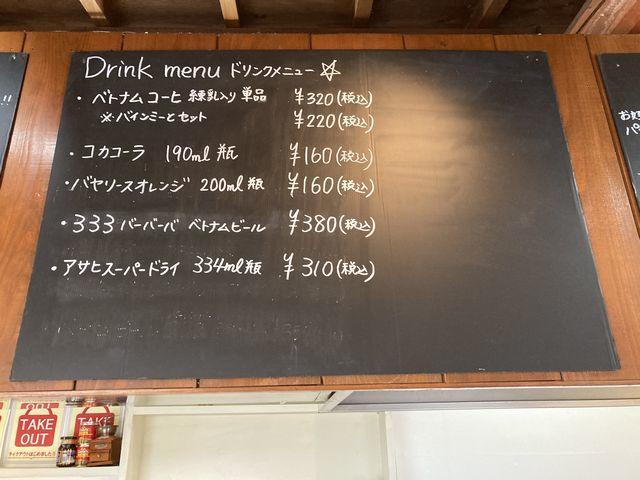 Drink menu ドリンクメニュー ☆
・ベトナムコーヒ 練乳入り 単品 ¥320(税込)
※バインミーとセット ¥220(税込)
・コカコーラ 190ml 瓶 ¥160(税込)
・バヤリースオレンジ 200ml 瓶 ¥160(税込)
・333 バーバーバ ベトナムビール ¥380(税込)
・アサヒスーパードライ 334ml 瓶 ¥310(税込)
!!
TAKE
OUT
テイクアウトはじめました!!
TAKE